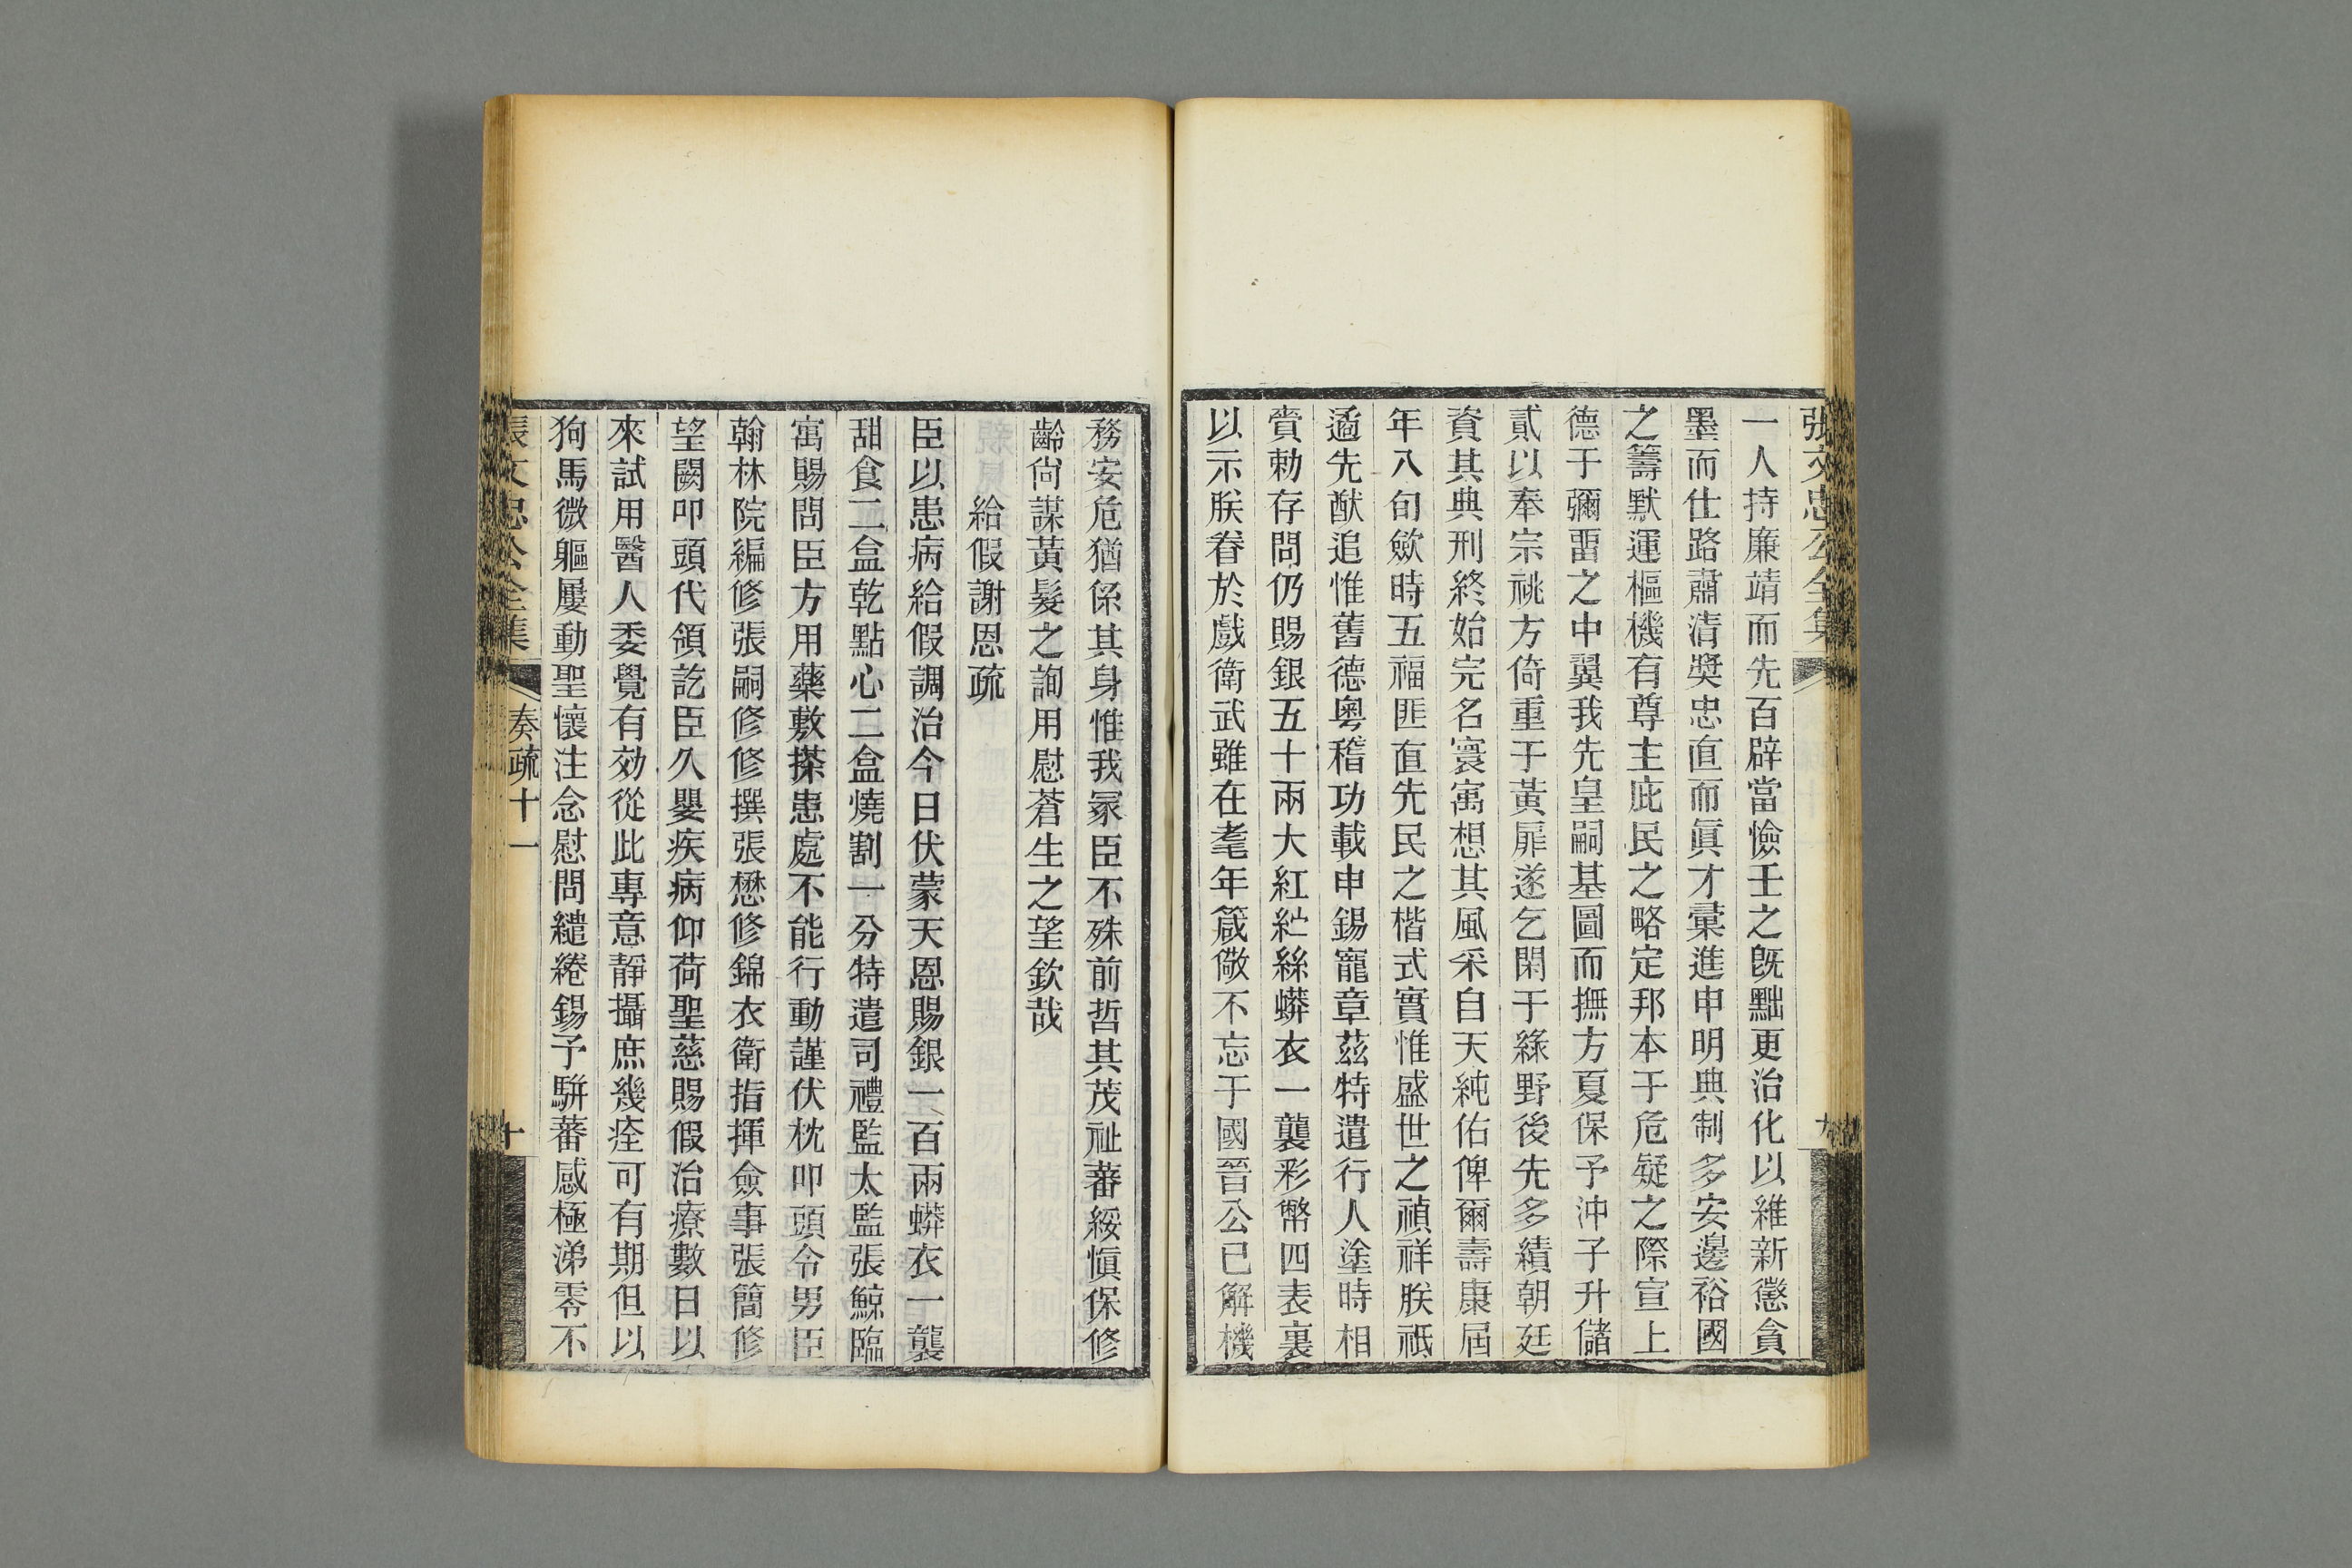 張文忠公全集
九
一人持廉靖而先百辟當憸壬之旣黜更治化以維新懲貪
墨而仕路肅清奬忠直而眞才彚進申明典制多安邊裕國
之籌默運樞機有尊主庇民之略定邦本于危疑之際宣上
德于彌留之中翼我先皇嗣基圖而撫方夏保予沖子升儲
貳以奉宗祧方倚重于黃扉遂乞閑于綠野後先多績朝廷
資其典刑終始完名寰㝢想其風采自天純佑俾爾壽康屆
年八旬歛時五福匪直先民之楷式實惟盛世之禎祥朕祗
遹先猷追惟舊德粤稽功載申錫寵章茲特遣行人塗時相
賫勅存問仍賜銀五十兩大紅紵絲蟒衣一襲彩幣四表裏
以示朕眷於戲衛武雖在耄年箴儆不忘于國晉公已解機
務安危猶係其身惟我冡臣不殊前哲其茂祉蕃綏愼保修
齡尙謀黃髮之詢用慰蒼生之望欽哉
給假謝恩疏
臣以患病給假調治今日伏蒙天恩賜銀一百兩蟒衣一襲
甜食二盒乾點心二盒燒割一分特遣司禮監太監張鯨臨
寓賜問臣方用藥敷搽患處不能行動謹伏枕叩頭令男臣
翰林院編修張嗣修修撰張懋修錦衣衛指揮僉事張簡修
望闕叩頭代領訖臣久嬰疾病仰荷聖慈賜假治療數日以
來試用醫人委覺有効從此專意靜攝庶幾痊可有期但以
狗馬微軀屢動聖懷注念慰問繾綣錫予駢蕃感極涕零不
張文忠公全集
奏疏十一
十